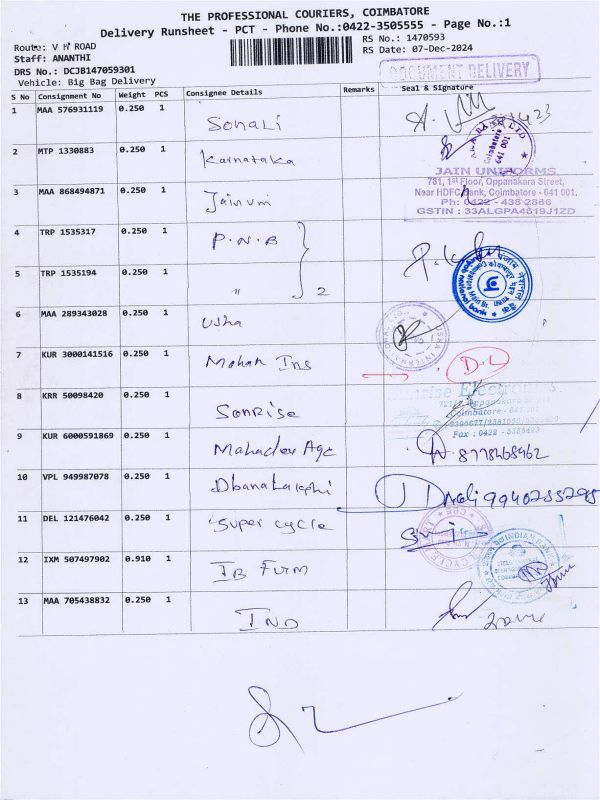 THE PROFESSIONAL COURIERS, COIMBATORE
Delivery Runsheet - PCT - Phone No.:0422-3505555 - Page No.:1
Route: V H ROAD
RS No.: 1470593
Staff: ANANTHI
RS Date: 07-Dec-2024
DRS No.: DCJB147059301
DOCUMENT DELIVERY
Vehicle: Big Bag Delivery
S No Consignment No Weight PCS Consignee Details Remarks Seal & Signature
1 MAA 576931119 0.250 1 Sonali
2 MTP 1330883 0.250 1 Karnataka
Coimbatore
641 001
3 MAA 868494871 0.250 1 Jainum
JAIN UNIFORMS
781, 1st Floor, Oppanakara Street,
Near HDFC Bank, Coimbatore - 641 001.
Ph: 0422 - 438 2886
GSTIN : 33ALGPA4619J1ZD
4 TRP 1535317 0.250 1 P.N.B
5 TRP 1535194 0.250 1 " 2
punjab national bank
6 MAA 289343028 0.250 1 Usha
USHA INTERNATIONAL
7 KUR 3000141516 0.250 1 Mohan Ins
D.L
8 KRR 50098420 0.250 1 Sonrise
Sunrise Electronics
Oppanakara
Coimbatore - 641 001
Fax : 0422 -
9 KUR 6000591869 0.250 1 Mahadev Age
8778468962
10 VPL 949987078 0.250 1 Dhanalakphi
9940255298
11 DEL 121476042 0.250 1 Super cycle
CYCLE
12 IXM 507497902 0.910 1 IB Furm
INDIAN BANK
13 MAA 705438832 0.250 1 IND